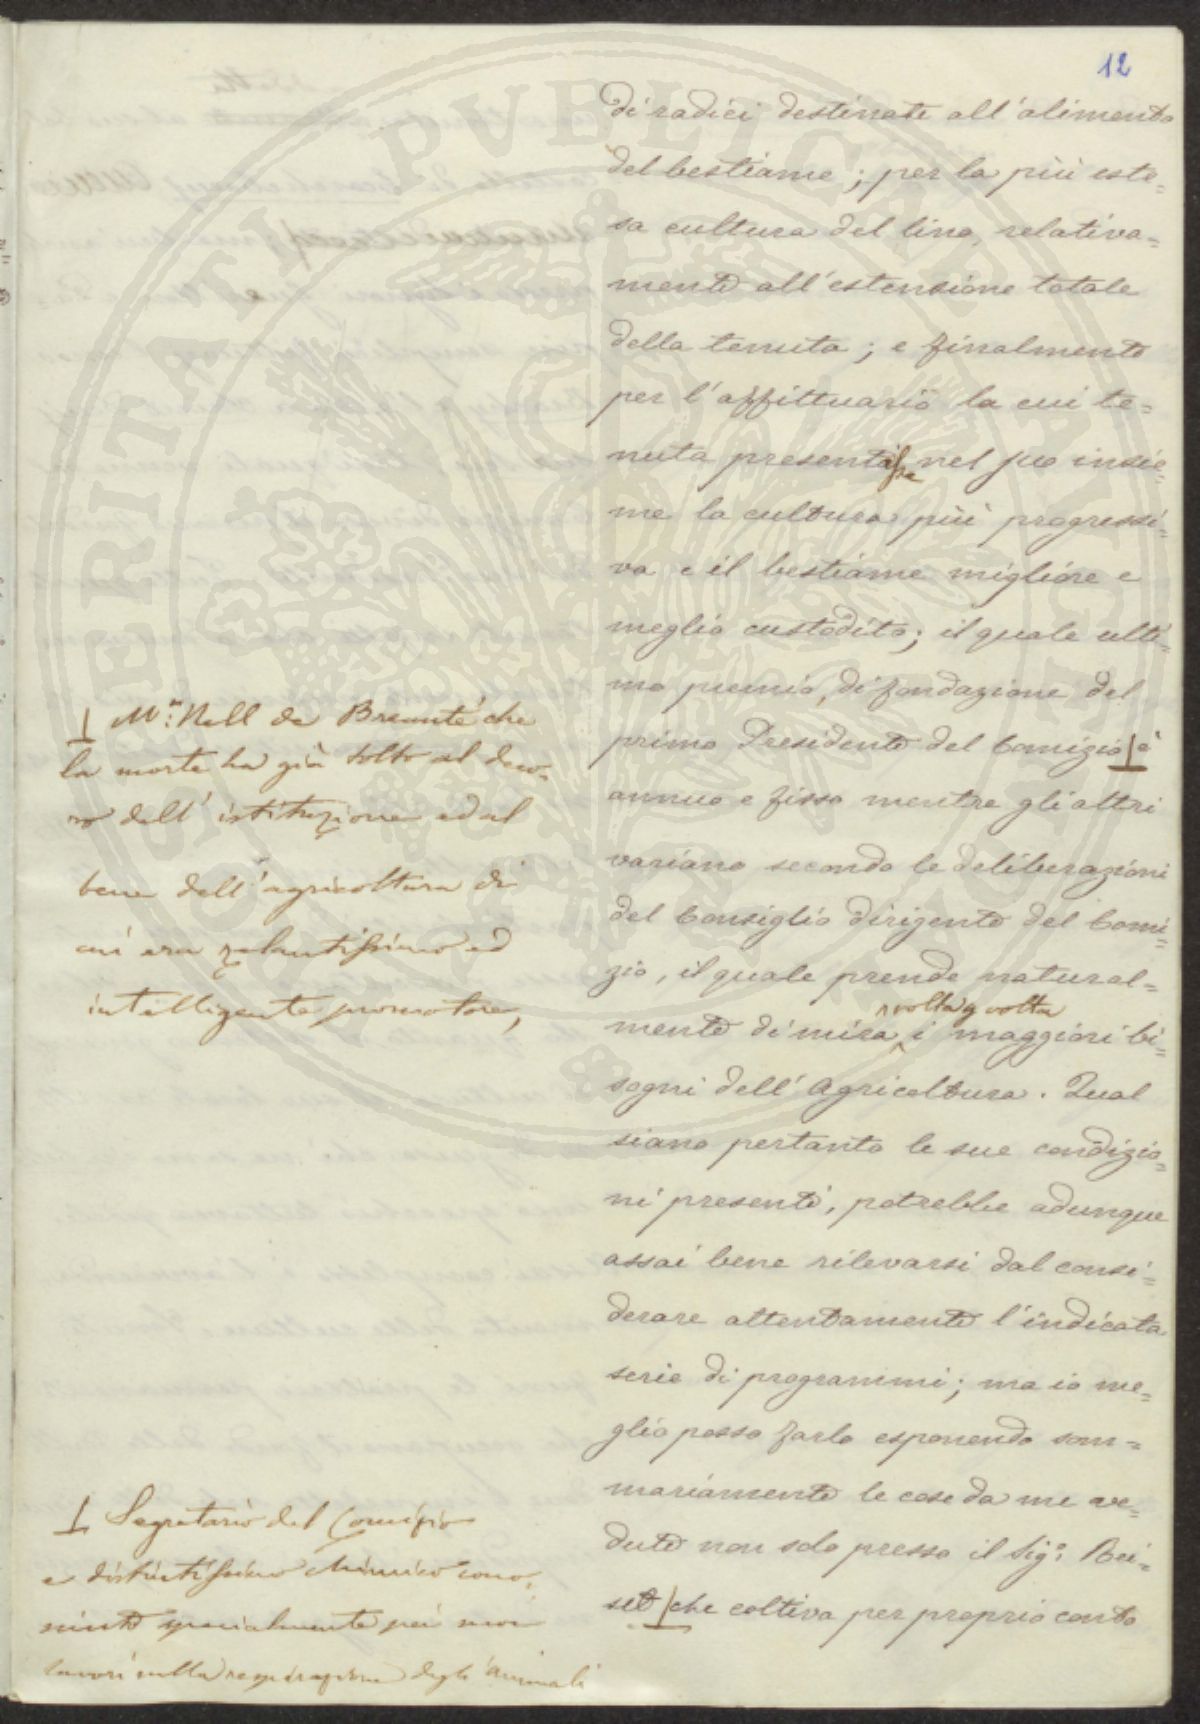 12
di radici destinate all'alimento
del bestiame; per la più este=
sa cultura del lino, relativa=
mente all'estensione totale
della tenuta; e finalmente
per l'affittuario la cui te=
nuta presentasse nel suo insie=
me la cultura più progressi=
va e il bestiame migliore e
meglio custodito; il quale ulti=
mo premio, di fondazione del
primo Presidente del Comizio è
annuo e fisso mentre gli altri
variano secondo le deliberazioni
del Consiglio dirigente del Comi=
zio, il quale prende natural=
volta a volta
mente di mira i maggiori bi=
sogni dell'Agricoltura. Qual
siano pertanto le sue condizio=
ni presenti, potrebbe adunque
assai bene rilevarsi dal consi=
derare attentamente l'indicata
serie di programmi; ma io me=
glio posso farlo esponendo som=
mariamente le cose da me ve=
dute non solo presso il Sigr: Rei=
set che coltiva per proprio conto
Mr: Nell de Breauté che
la morte ha già tolto al deco=
ro dell'istituzione ed al
bene dell'agricoltura di
cui era zelantissimo ed
intelligente promotore,
Segretario del Comizio
e distintissimo chimico cono=
sciuto specialmente pei suoi
lavori sulla respirazione degli animali
PROSPERITATI PVBLICAE